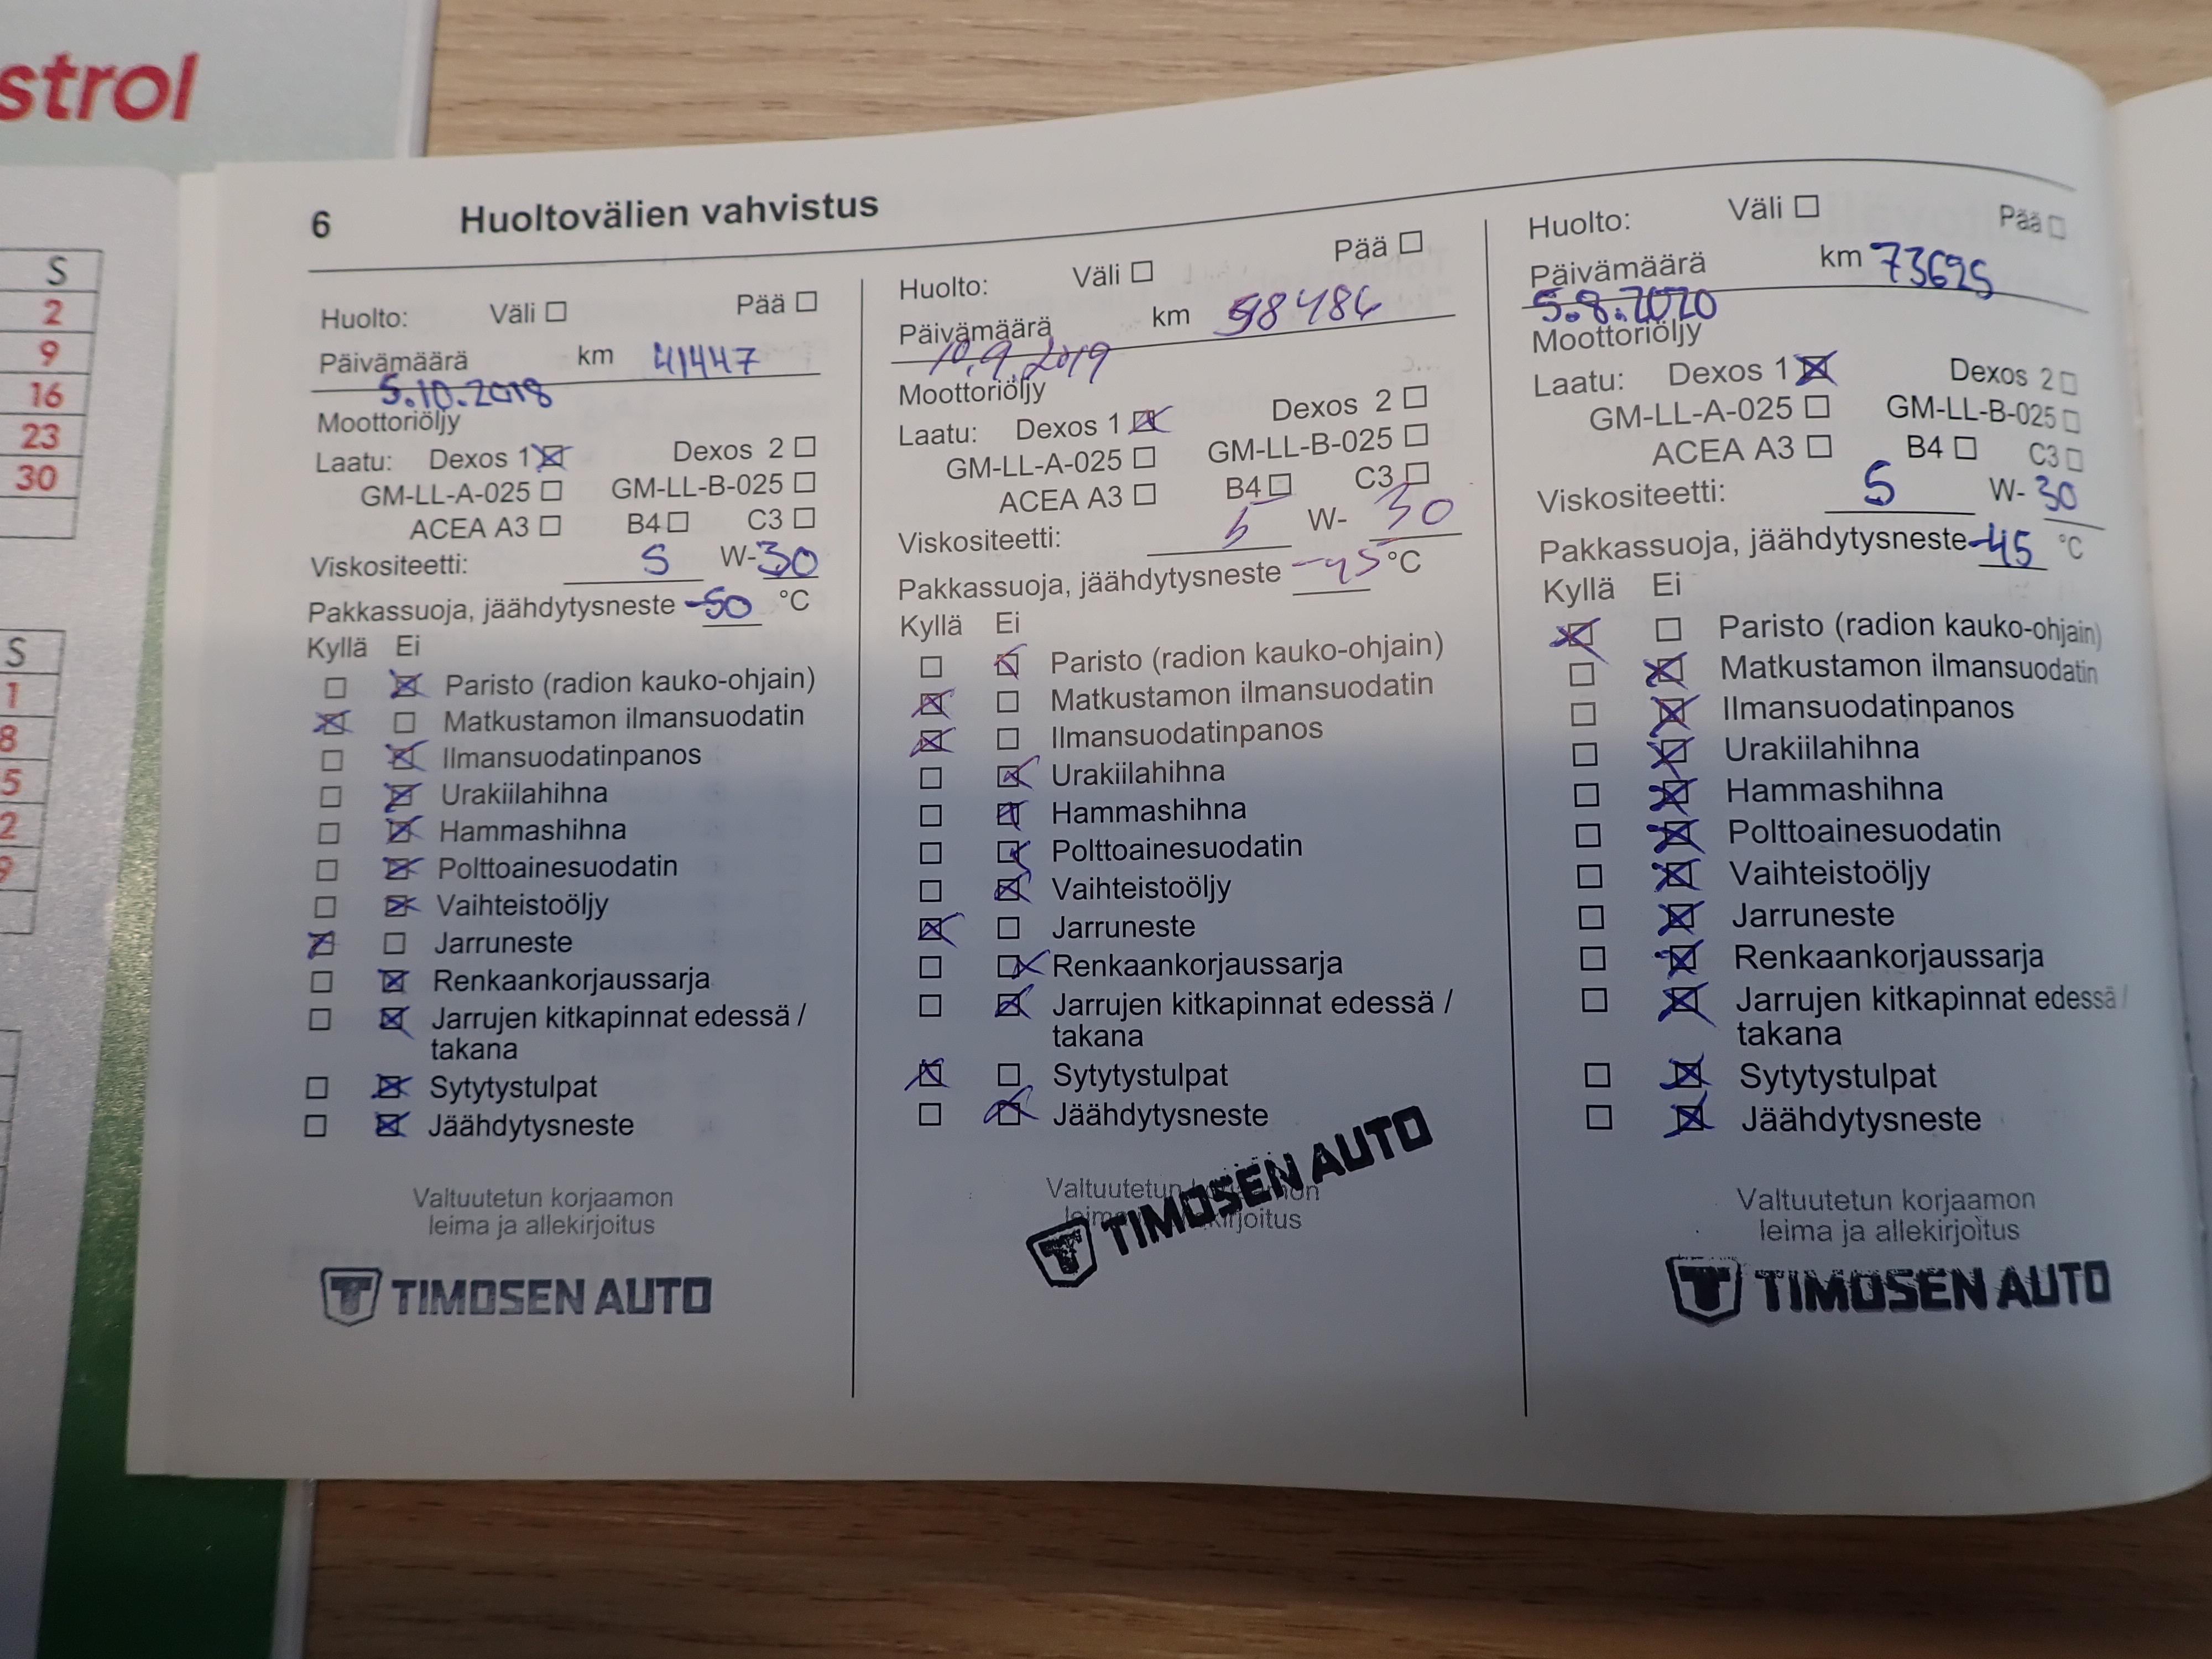 strol
S
2
9
16
23
30
S
1
8
5
2
9
6 Huoltovälien vahvistus
Huolto: Väli ☐ Pää ☐
Päivämäärä km 41447
5.10.2018
Moottoriöljy
Laatu: Dexos 1 ☒ Dexos 2 ☐
GM-LL-A-025 ☐ GM-LL-B-025 ☐
ACEA A3 ☐ B4 ☐ C3 ☐
Viskositeetti: 5 W-30
Pakkassuoja, jäähdytysneste -50 °C
Kyllä Ei
☐ ☒ Paristo (radion kauko-ohjain)
☒ ☐ Matkustamon ilmansuodatin
☐ ☒ Ilmansuodatinpanos
☐ ☒ Urakiilahihna
☐ ☒ Hammashihna
☐ ☒ Polttoainesuodatin
☐ ☒ Vaihteistoöljy
☒ ☐ Jarruneste
☐ ☒ Renkaankorjaussarja
☐ ☒ Jarrujen kitkapinnat edessä /
takana
☐ ☒ Sytytystulpat
☐ ☒ Jäähdytysneste
Valtuutetun korjaamon
leima ja allekirjoitus
TIMOSEN AUTO
Huolto: Väli ☐ Pää ☐
Päivämäärä km 58484
10.9.2019
Moottoriöljy
Laatu: Dexos 1 ☒ Dexos 2 ☐
GM-LL-A-025 ☐ GM-LL-B-025 ☐
ACEA A3 ☐ B4 ☐ C3 ☐
Viskositeetti: 5 W- 30
Pakkassuoja, jäähdytysneste -45 °C
Kyllä Ei
☐ ☒ Paristo (radion kauko-ohjain)
☒ ☐ Matkustamon ilmansuodatin
☒ ☐ Ilmansuodatinpanos
☐ ☒ Urakiilahihna
☐ ☒ Hammashihna
☐ ☒ Polttoainesuodatin
☐ ☒ Vaihteistoöljy
☒ ☐ Jarruneste
☐ ☒ Renkaankorjaussarja
☐ ☒ Jarrujen kitkapinnat edessä /
takana
☒ ☐ Sytytystulpat
☐ ☒ Jäähdytysneste
Valtuutetun korjaamon
leima ja allekirjoitus
TIMOSEN AUTO
Huolto: Väli ☐ Pää ☐
Päivämäärä km 73695
5.8.2020
Moottoriöljy
Laatu: Dexos 1 ☒ Dexos 2 ☐
GM-LL-A-025 ☐ GM-LL-B-025 ☐
ACEA A3 ☐ B4 ☐ C3 ☐
Viskositeetti: 5 W- 30
Pakkassuoja, jäähdytysneste -45 °C
Kyllä Ei
☒ ☐ Paristo (radion kauko-ohjain)
☐ ☒ Matkustamon ilmansuodatin
☐ ☒ Ilmansuodatinpanos
☐ ☒ Urakiilahihna
☐ ☒ Hammashihna
☐ ☒ Polttoainesuodatin
☐ ☒ Vaihteistoöljy
☐ ☒ Jarruneste
☐ ☒ Renkaankorjaussarja
☐ ☒ Jarrujen kitkapinnat edessä /
takana
☐ ☒ Sytytystulpat
☐ ☒ Jäähdytysneste
Valtuutetun korjaamon
leima ja allekirjoitus
TIMOSEN AUTO